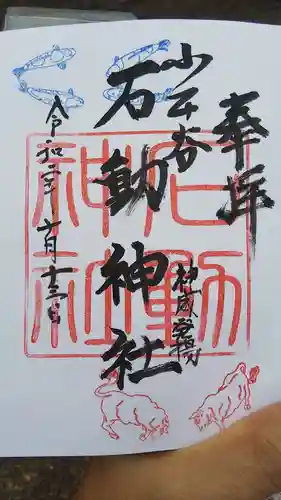 奉拝
小千谷
石動神社
神威発揚
令和二年六月十三日
石動神社